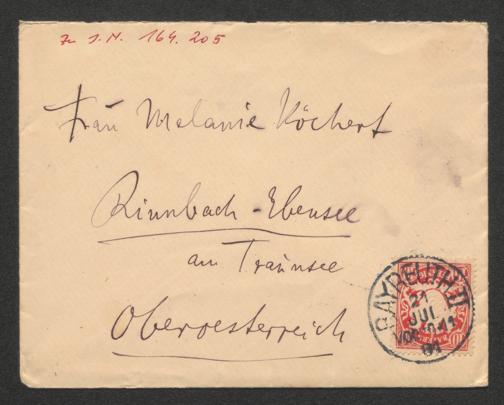 Zu I.N. 164.205
Frau Melanie Köchert
Rinnbach-Ebensee
am Traunsee
Oberoesterreich
BAYREUTH II
21
JUL
VOR 10-11